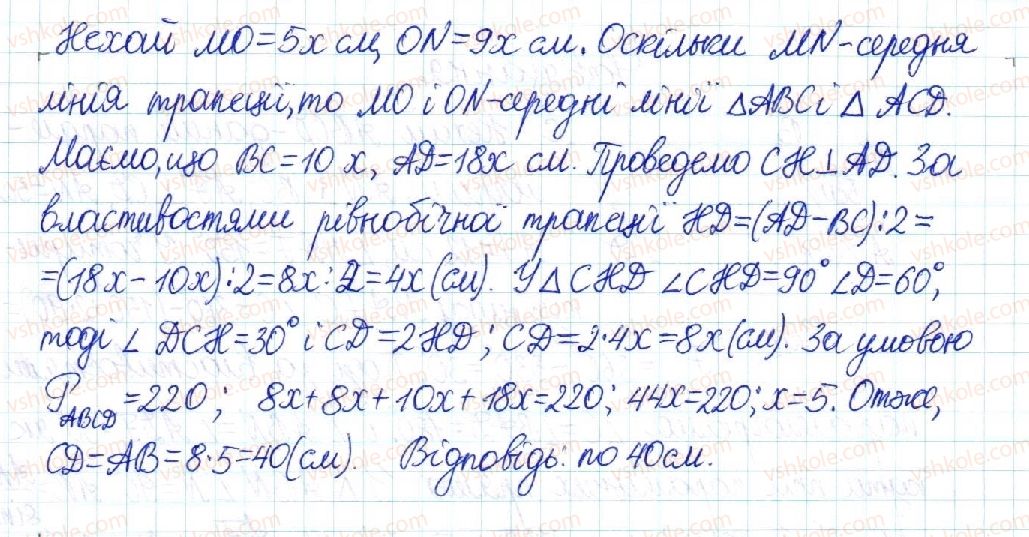 Нехай MO=5x см, ON=9x см. Оскільки MN-середня
лінія трапеції, то MO і ON-середні лінії △ABC і △ ACD.
Маємо, що BC=10 x, AD=18x см. Проведемо CH⊥AD. За
властивостями рівнобічної трапеції HD=(AD-BC):2=
=(18x-10x):2=8x:2=4x(см). У △CHD ∠CHD=90° ∠D=60°,
тоді ∠ DCH=30° і CD=2HD; CD=2·4x=8x(см). За умовою
P_ABCD=220; 8x+8x+10x+18x=220; 44x=220; x=5. Отже,
CD=AB=8·5=40(см). Відповідь: по 40см.